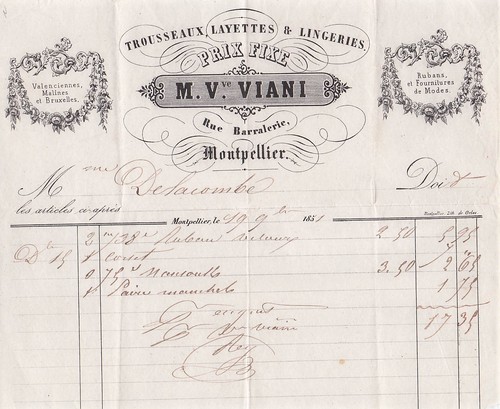 TROUSSEAUX, LAYETTES & LINGERIES.
PRIX FIXE
M. Vve VIANI
Rue Barralerie,
Montpellier.
Valenciennes,
Malines
et Bruxelles.
Rubans,
et Fournitures
de Modes.
Mme Delacombe Doit
les articles ci-après
Montpellier, le 19 9bre 1851
Montpellier, Lith. de
2m 38c Ruban velours 2 50 5 95
Dbre 15 1 corset
0,75c Nansouk 3.50 2 65
1 Paire manches 1 75
17 35
Viani